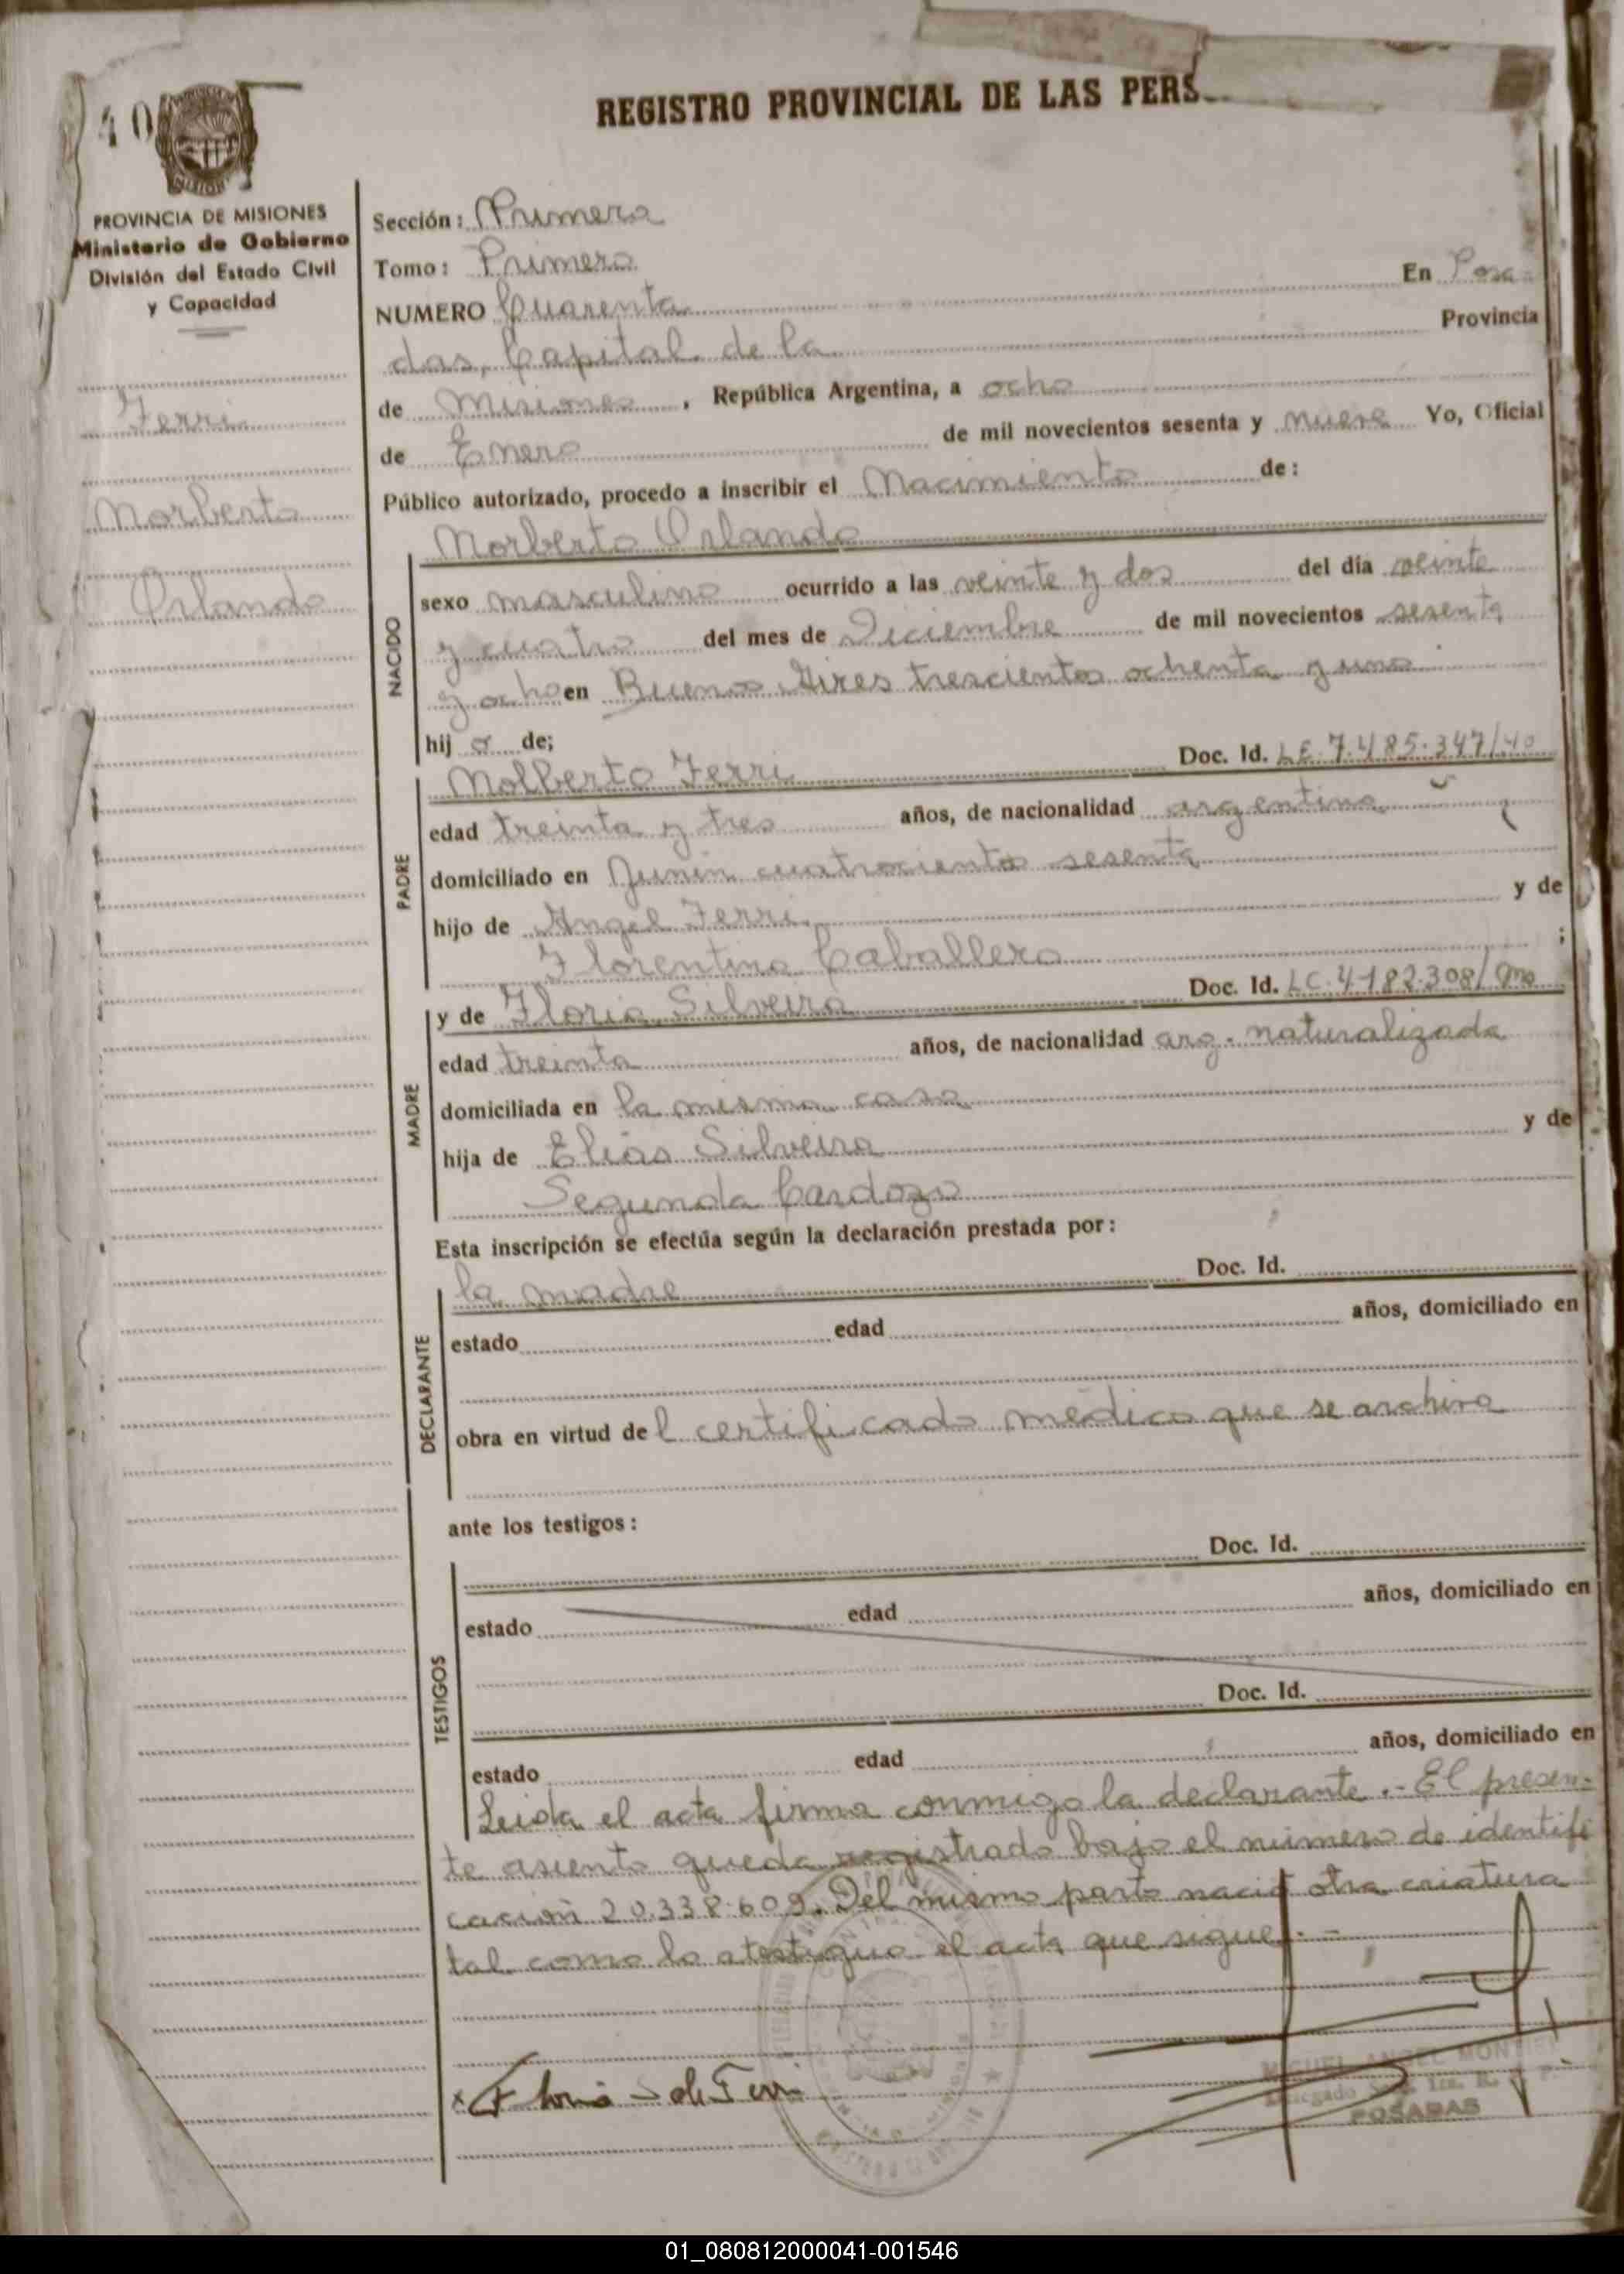 REGISTRO PROVINCIAL DE LAS PERS
40
PROVINCIA DE MISIONES
Ministerio de Gobierno
División del Estado Civil
y Capacidad
Ferri
Norberto
Orlando
Sección: Primera
Tomo: Primero
NUMERO Cuarenta En Posa
das, Capital de la Provincia
de Misiones, República Argentina, a ocho
de Enero de mil novecientos sesenta y nueve Yo, Oficial
Público autorizado, procedo a inscribir el Nacimiento de:
NACIDO
Norberto Orlando
sexo masculino ocurrido a las veinte y dos del día veinte
y cuatro del mes de Diciembre de mil novecientos sesenta
y ocho en Buenos Aires trescientos ochenta y uno
hijo de;
PADRE
Nolberto Ferri Doc. Id. LE 7.485.347/40
edad treinta y tres años, de nacionalidad argentina
domiciliado en Junin cuatrocientos sesenta
hijo de Angel Ferri y de
Florentina Caballero ;
MADRE
y de Floria Silveira Doc. Id. LC.4182.308/
edad treinta años, de nacionalidad arg. naturalizada
domiciliada en la misma casa
hija de Elias Silveira y de
Segunda Cardozo
Esta inscripción se efectúa según la declaración prestada por:
DECLARANTE
la madre Doc. Id.
estado edad años, domiciliado en
obra en virtud del certificado médico que se archiva
ante los testigos:
TESTIGOS
Doc. Id.
estado edad años, domiciliado en
Doc. Id.
estado edad años, domiciliado en
Leida el acta firma conmigo la declarante.- El presen-
te asiento queda registrado bajo el número de identifi
cación 20.338.609. Del mismo parto nació otra criatura
tal como lo atestigua el acta que sigue.-
x Floria S de Ferri
MIGUEL ANGEL MONTIEL
Delegado Secc. 1ra. R. P. P.
POSADAS
01_080812000041-001546